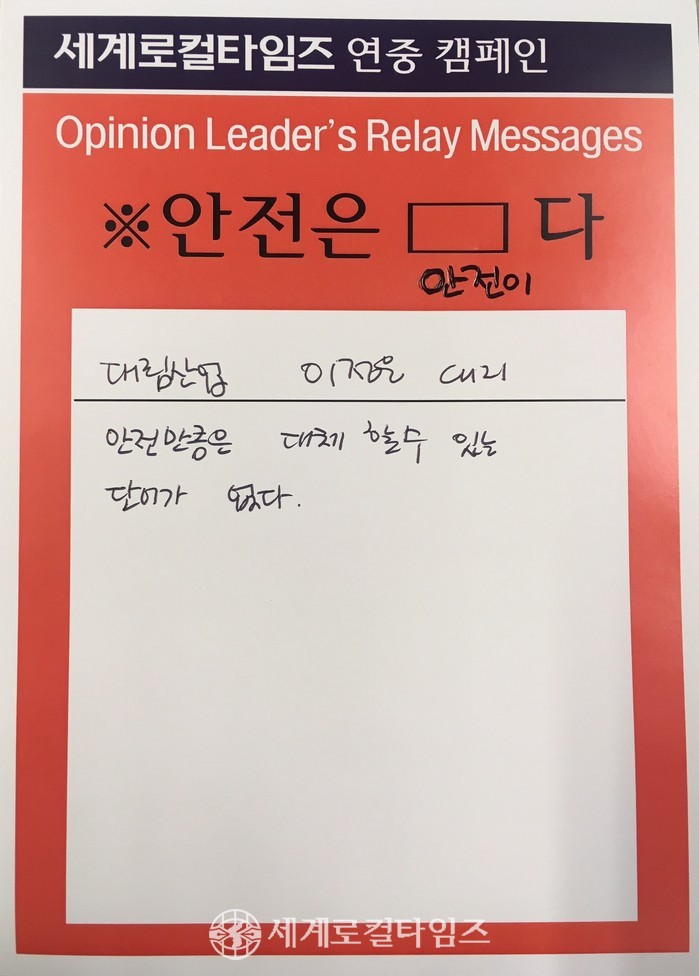 세계로컬타임즈 연중 캠페인
Opinion Leader's Relay Messages
※안전은 다
안전이
대림산업 이정은 대리
안전만큼은 대체 할수 있는
단어가 없다.
세계로컬타임즈